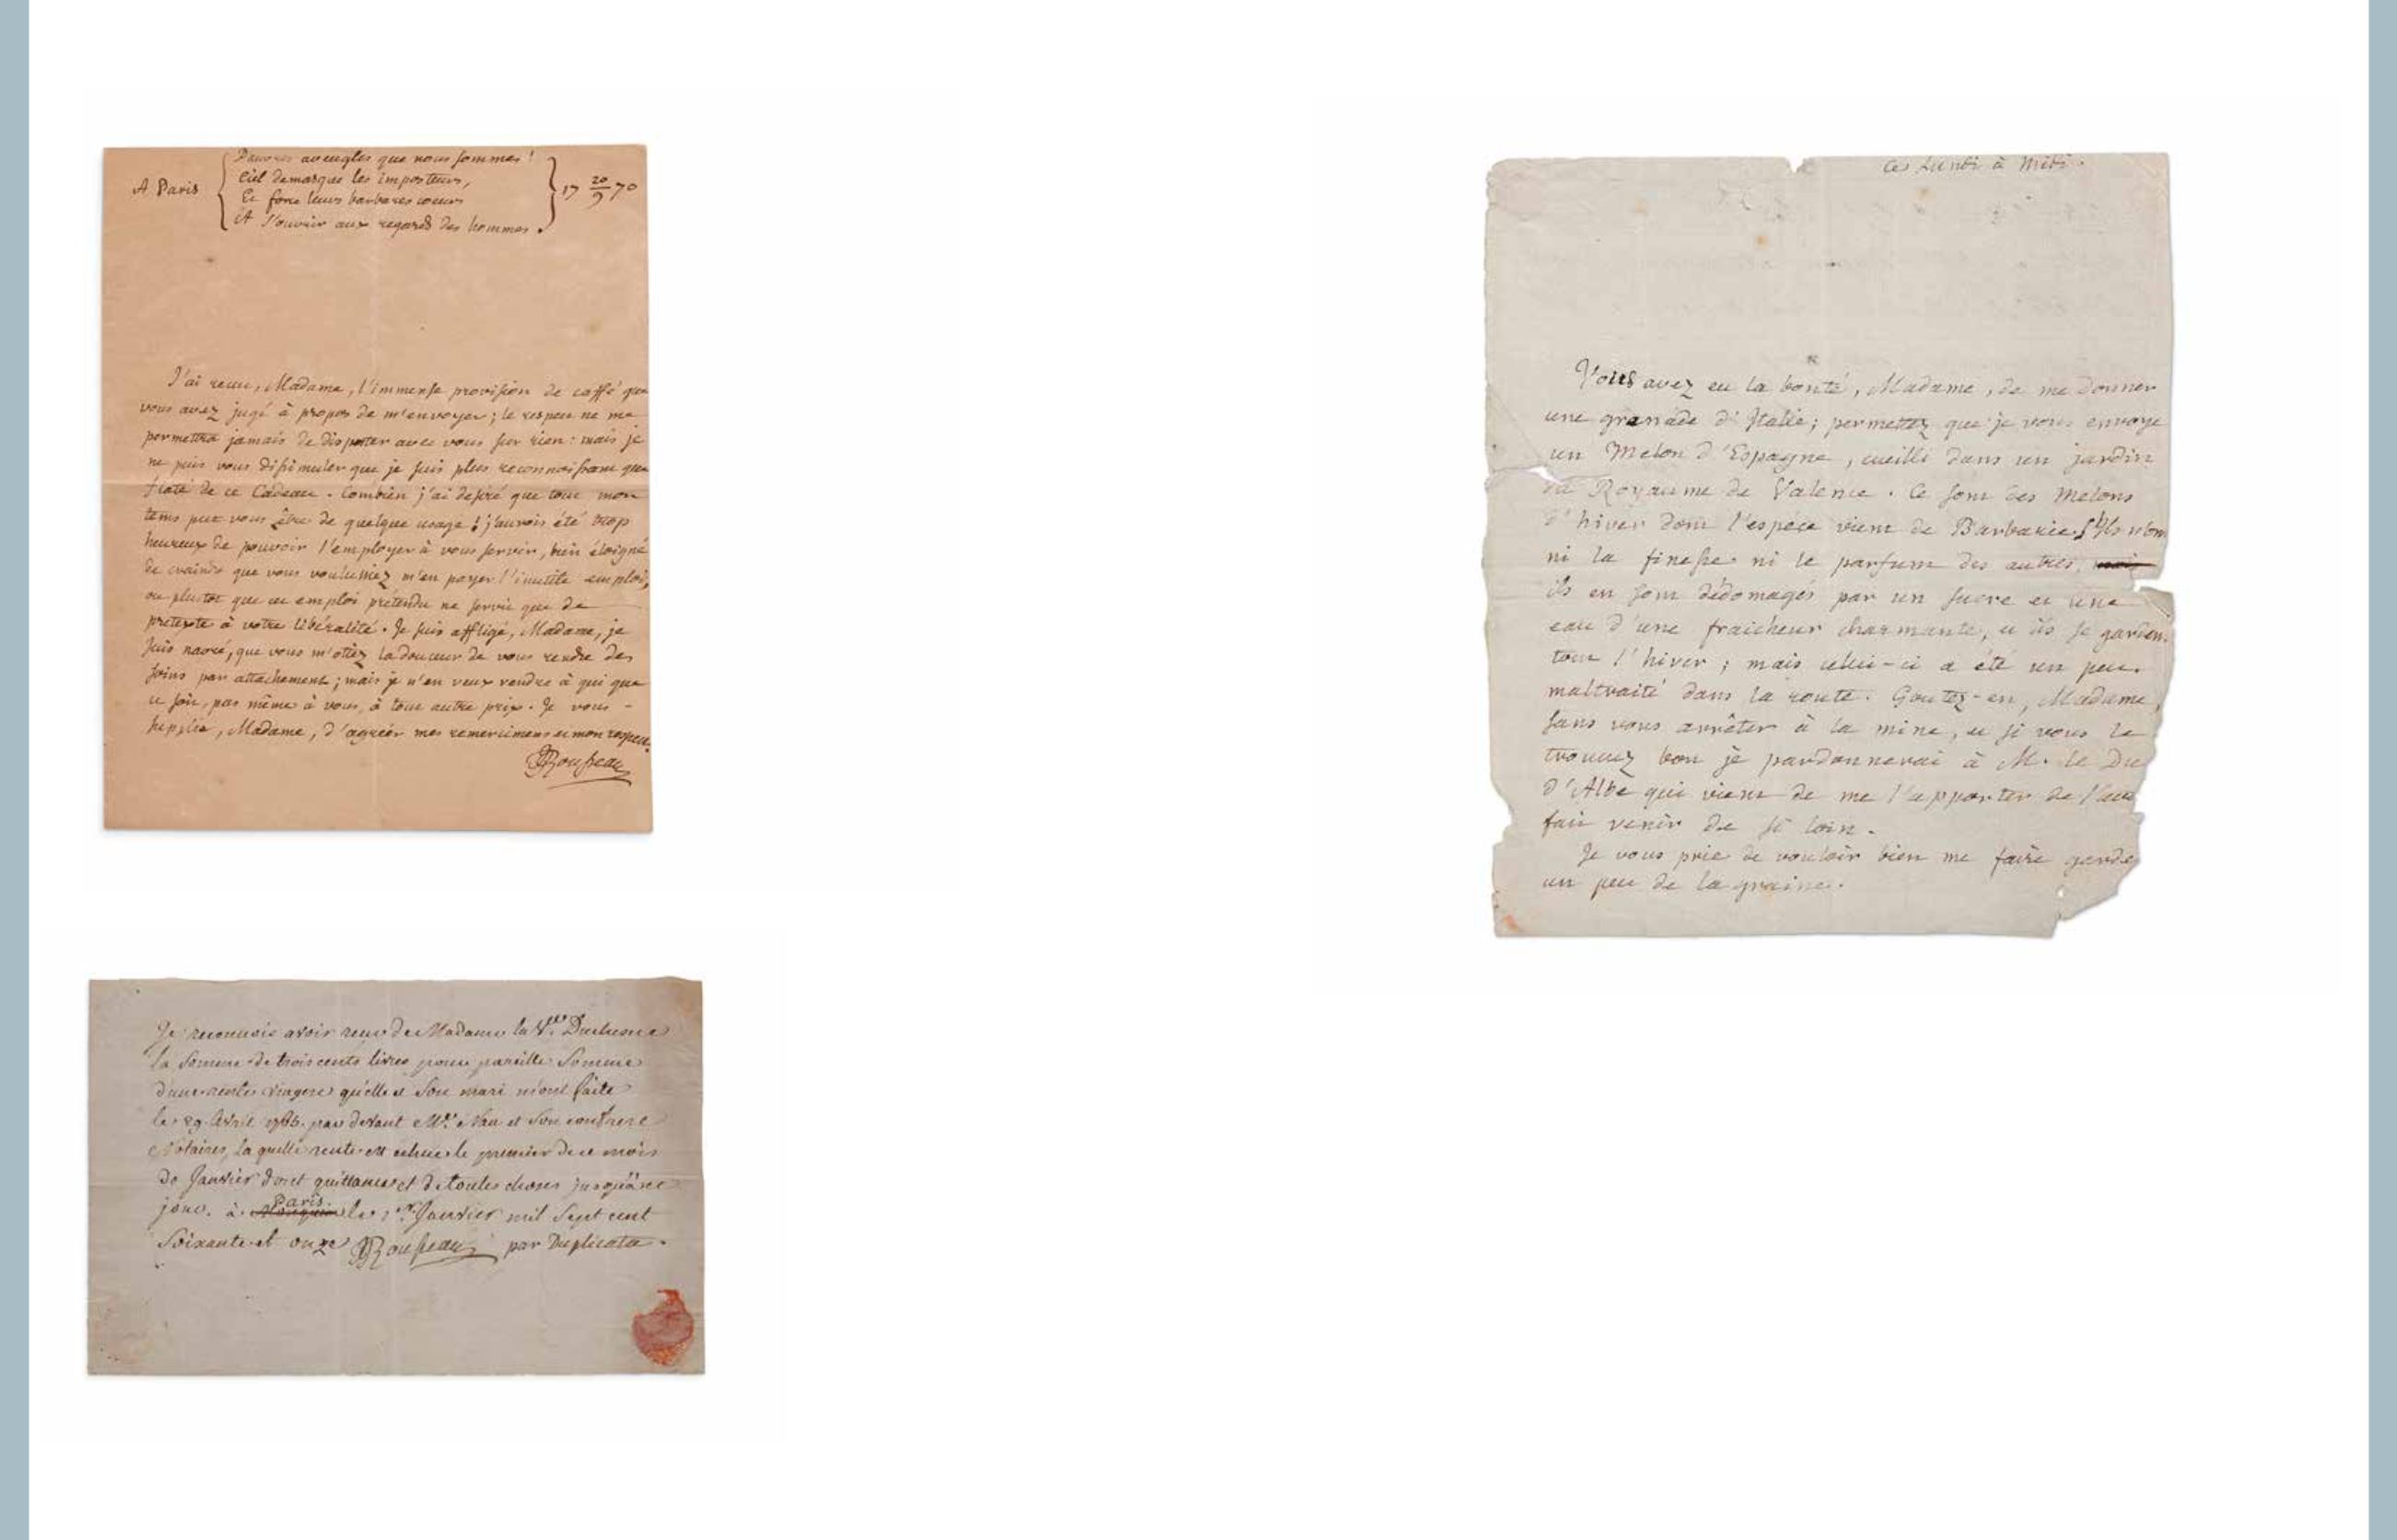 A Paris
Pauvres aveugles que nous sommes!
Ciel demasque les imposteurs,
Et force leurs barbares coeurs
A s'ouvrir aux regards des hommes.
17 20/9 70
J'ai receu, Madame, l'immense provision de caffé que
vous avez jugé à propos de m'envoyer; le respect ne me
permettra jamais de disputer avec vous sur rien: mais je
ne puis vous dissimuler que je suis plus reconnoissant que
flaté de ce Cadeau. Combien j'ai desiré que tout mon
tems put vous être de quelque usage! j'aurois été trop
heureux de pouvoir l'employer à vous servir, bien éloigné
de craindre que vous voulussiez m'en payer l'inutile emploi,
ou plustot que cet emploi prétendu ne servit que de
prétexte à votre libéralité. Je suis affligé, Madame, je
suis navré, que vous m'otiez la douceur de vous rendre des
soins par attachement; mais je n'en veux vendre à qui que
ce soit, pas même à vous, à tout autre prix. Je vous
supplie, Madame, d'agréer mes remercimens et mon respect.
JJRousseau
Je reconnois avoir reçu de Madame la Vve Duchesne
la Somme de trois cents livres pour pareille Somme
d'une rente viagere qu'elle et Son mari m'ont faite
le 29 Avril 1765. par devant Me. Nau et Son confrere
Notaires, la quelle rente est échue le premier de ce mois
de Janvier dont quittance et de toutes choses jusqu'à ce
jour. à Paris le 1er. Janvier mil Sept cent
Soixante et onze JJRousseau par Duplicata.
Ce Lundi à Midi.
Vous avez eu la bonté, Madame, de me donner
une grenade d'Italie; permettez que je vous envoye
un Melon d'Espagne, cueilli dans un jardin
du Royaume de Valence. Ce sont des Melons
d'hiver dont l'espéce vient de Barbarie. Ils n'ont
ni la finesse ni le parfum des autres,
ils en sont dédomagés par un sucre et une
eau d'une fraicheur charmante, et ils se garden
tout l'hiver; mais celui-ci a été un peu
maltraité dans la route. Goutez-en, Madame,
sans vous arrêter à la mine, et si vous le
trouvez bon je pardonnerai à M. le Du
d'Albe qui vient de me l'apporter de l'avo
fait venir de si loin.
Je vous prie de vouloir bien me faire garde
un peu de la graine.